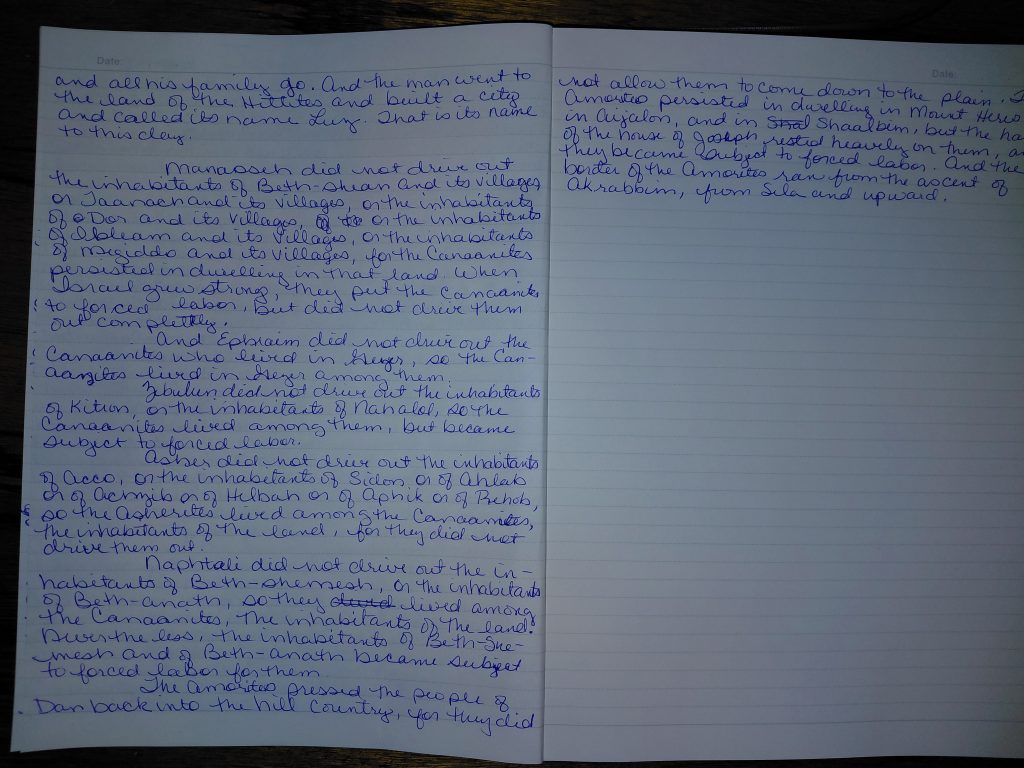 Date:
and all his family go. And the man went to
the land of the Hittites and built a city
and called its name Luz. That is its name
to this day.
Manasseh did not drive out
the inhabitants of Beth-shean and its villages,
or Taanach and its villages, or the inhabitants
of Dor and its villages, or the inhabitants
of Ibleam and its villages, or the inhabitants
of Megiddo and its villages, for the Canaanites
persisted in dwelling in that land. When
Israel grew strong, they put the Canaanites
to forced labor, but did not drive them
out completly.
And Ephraim did not drive out the
Canaanites who lived in Gezer, so the Can-
aanites lived in Gezer among them.
Zbulun did not drive out the inhabitants
of Kitron, or the inhabitants of Nahalol, so the
Canaanites lived among them, but became
subject to forced labor.
Asher did not drive out the inhabitants
of Acco, or the inhabitants of Sidon, or of Ahlab
or of Achzib or of Helbah or of Aphik or of Rehob,
so the Asherites lived among the Canaanites,
the inhabitants of the land, for they did not
drive them out.
Naphtali did not drive out the in-
habitants of Beth-shemesh, or the inhabitants
of Beth-anath, so they lived among
the Canaanites, the inhabitants of the land.
the less, the inhabitants of Beth-she-
mesh and of Beth-anath became subject
to forced labor for them.
The Amorites pressed the people of
Dan back into the hill country, for they did
Date:
not allow them to come down to the plain.
Amorites persisted in dwelling in Mount Heres
in Aijalon, and in Shaalbim, but the
of the house of Joseph rested heavily on them,
they became subject to forced labor. And the
border of the Amorites ran from the ascent of
Akrabbim, from Sela and upward.